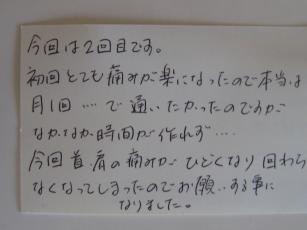 今回は2回目です。
初回とても痛みが楽になったので本当は
月1回‥‥で通いたかったのですが
なかなか時間が作れず‥‥
今回首、肩の痛みがひどくなり回わら
なくなってしまったのでお願いする事に
なりました。